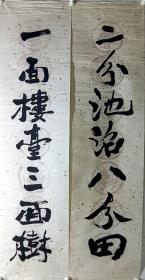 二分池沼八分田
一面樓臺三面樹